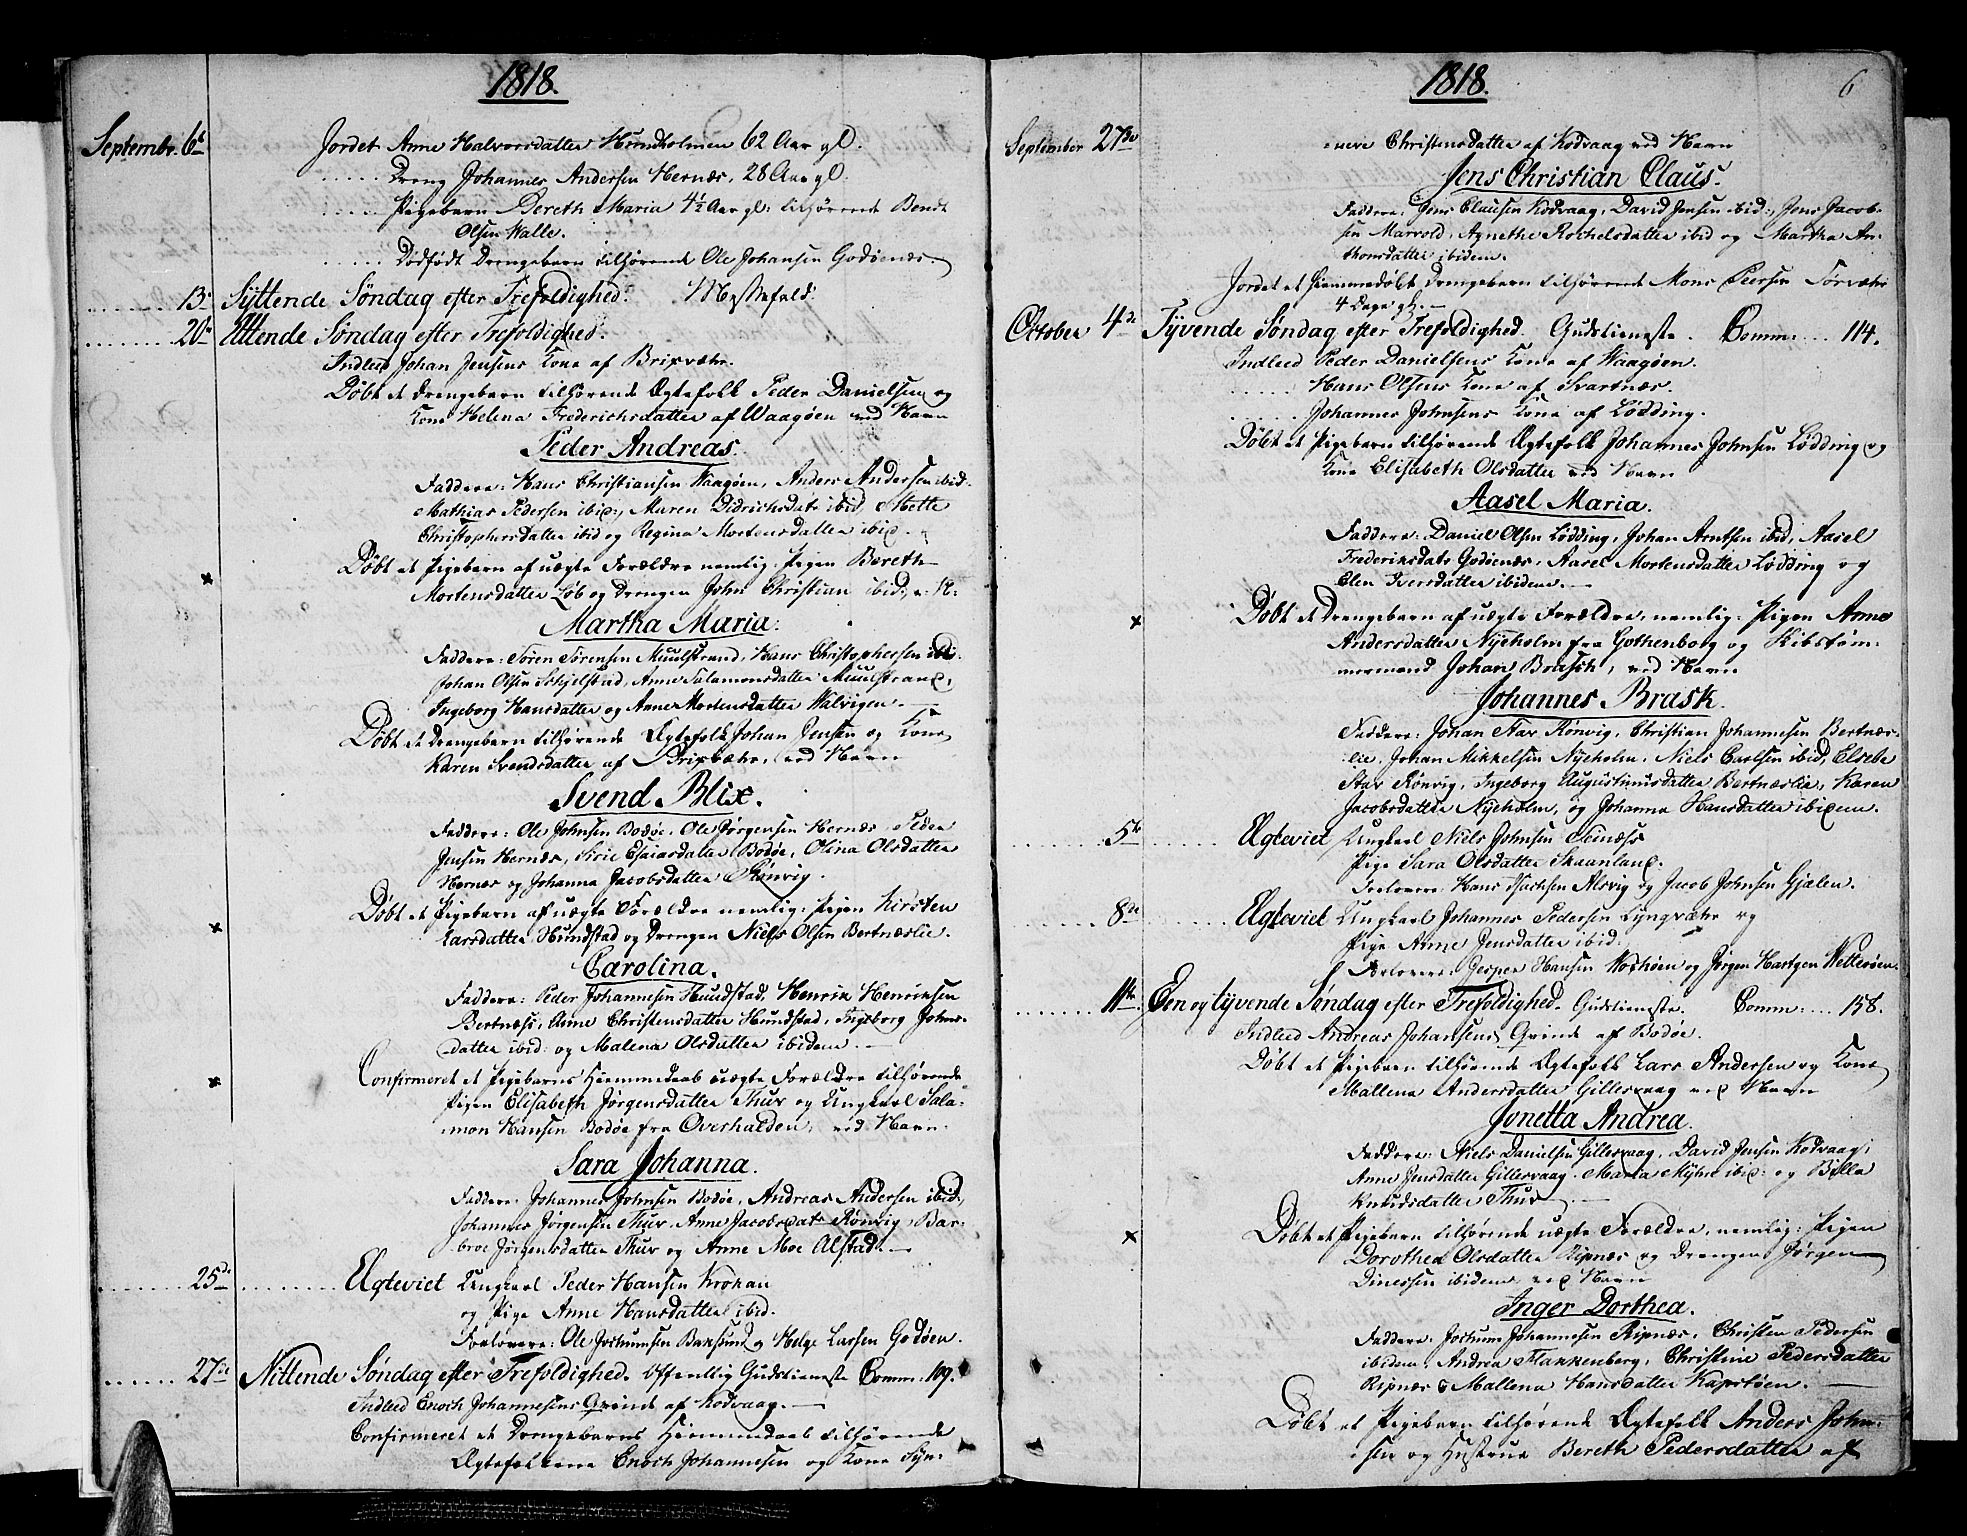 1818.
Septembr. 6te Jordet Anne Halvorsdatter Hundholmen 62 Aar gl.
Dreng Johannes Andersen Hernæs, 28 Aar gl.
Pigebarn Bereth Maria 4½ Aar gl: tilhørende Bendt
Olsen Walle.
Dødfødt Drengebarn tilhørende Ole Johansen Godønæs.
13. Syttende Søndag efter Trefoldighed. Messefald.
20de Attende Søndag efter Trefoldighed.
Indled Johan Jensens Kone af Brixværr.
Døbt et Drengebarn tilhørende Ægtefolk Peder Danielsen og
Kone Helena Frederichsdatter af Waagøen ved Navn
Peder Andreas.
Faddere: Hans Christiansen Waagøen, Anders Andersen ibid.
Mathias Pedersen ibid:, Maren Didrichsdatr ibid, Mette
Christophersdatter ibid og Regina Mortensdatter ibid.
× Døbt et Pigebarn af uægte Forældre nemlig: Pigen Bereth
Mortensdatter Løb og Drengen John Christian ibid:, v: N:
Martha Maria.
Faddere: Sören Sörensen Muulstrand, Hans Christophersen ibid.
Johan Olsen Schjelstad, Anne Salamonsdatter Muulstrand,
Ingeborg Hansdatter og Anne Mortensdatter Walvigen.
Døbt et Drengebarn tilhørende Ægtefolk Johan Jensen og Kone
Karen Svendsdatter af Brixværr, ved Navn
Svend Blix.
Faddere: Ole Johnsen Bodøe, Ole Jørgensen Hernæs, Peder
Jensen Hernæs, Sirie Esaiasdatter Bodøe, Olina Olsdatter
Hernæs og Johanna Jacobsdatter Rönvig.
× Døbt et Pigebarn af uægte Forældre nemlig: Pigen Kirsten
Larsdatter Hundstad og Drengen Niels Olsen Bertnæslie.
Carolina.
Faddere: Peder Johannesen Hundstad, Henrik Henriksen
Bertnæs, Anne Christensdatter Hundstad, Ingeborg Johns-
datter ibid: og Malena Olsdatter ibidem.
× Confirmeret et Pigebarns Hiemmedaab uægte Forældre tilhørende
Pigen Elisabeth Jørgensdatter Thuv og Ungkarl Sala-
mon Hansen Bodøe fra Overhalden, ved Navn.
Sara Johanna.
Faddere: Johannes Johnsen Bodøe, Andreas Andersen ibid,
Johannes Jørgensen Thuv, Anne Jacobsdatr Rönvig, Bar-
broe Jørgensdatter Thuv og Anne Moe Alstad.
25de Ægteviet Ungkarl Peder Hansen Krokan
og Pige Anne Hansdatter ibid.
Forlovere: Ole Jochumsen Baksund og Helge Larsen Godøen.
27de Nittende Søndag efter Trefoldighed. Offentlig Gudstieneste Comm: 109.
Indled Enoch Johannesens Qvinde af Kodvaag.
Confirmeret et Drengebarns Hiemmedaab tilhørende
Ægtefolkene Enoch Johannesen og Kone Syn-
1818. 6
September 27de neve Christensdatter af Kodvaag ved Navn
Jens Christian Claus.
Faddere: Jens Clausen Kodvaag, David Jensen ibid:, Jens Jacob-
sen Marvold, Agnethe Rochelsdatter ibid og Martha An-
thonsdatter ibidem.
Jordet et Hiemmedøbt Drengebarn tilhørende Mons Peersen Torværr
4 Dage gl.
October 4de Tyvende Søndag efter Trefoldighed. Gudstieneste. Comm: 114.
Indled Peder Danielsens Kone af Waagøen.
Hans Olsens Kone af Svartnæs.
Johannes Johnsens Kone af Lødding.
Døbt et Pigebarn tilhørende Ægtefolk Johannes Johnsen Lødding og
Kone Elisabeth Olsdatter ved Navn
Aasel Maria.
Faddere: Daniel Olsen Lødding, Johan Arntsen ibid, Aasel
Frederiksdatr Godønæs, Aasel Mortensdatter Lødding og
Elen Iversdatter ibidem.
× Døbt et Drengebarn af uægte Forældre, nemlig: Pigen Anne
Andersdatter Nyeholm fra Gothenborg og Skibstøm-
mermand Johan Brasch, ved Navn
Johannes Brask.
Faddere: Johan Star Rönvig, Christian Johannesen Bertnæs-
lie, Johan Mikkelsen Nyeholm, Niels Carlsen ibid, Elsebe
Star Rönvig, Ingeborg Augustinusdatter Bertnæslie, Karen
Jacobsdatter Nyeholm, og Johanna Hansdatter ibidem.
5te Ægteviet Ungkarl Niels Johnsen Seinæss
Pige Sara Olsdatter Skaanland.
Forlovere: Hans Isachsen Alsvig og Jacob Johnsen Gjælen.
8de Ægteviet Ungkarl Johannes Pedersen Lyngværr og
Pige Anne Jensdatter ibid.
Forlovere: Jesper Hansen Noshøen og Jørgen Hartgen Wetterøen.
11te Een og tyvende Søndag efter Trefoldighed. Gudstieneste. Comm: 158.
Indled Andreas Johansens Qvinde af Bodøe.
Døbt et Pigebarn tilhørende Ægtefolk Lars Andersen og Kone
Mallena Andersdatter Gillesvaag ved Navn
Jonetta Andrea.
Faddere: Niels Danielsen Gillesvaag, David Jensen Kodvaag,
Anne Jensdatter Gillesvaag, Maria ibid: og Billa
Knudsdatter Thuv
× Døbt et Pigebarn tilhørende uægte Forældre, nemlig: Pigen
Dorothea Olsdatter Ripnæs og Drengen Jørgen
Dinessen ibidem ved Navn
Inger Dorthea.
Faddere: Jochum Johannesen Ripnæs, Christen Pedersen
ibidem, Andrea Flakkenberg, Christine Pedersdatter
Ripnæs & Mallena Hansdatter Kapstøen.
Døbt et Pigebarn tilhørende Ægtefolk Anders John-
sen og Hustrue Bereth Pedersdatter af